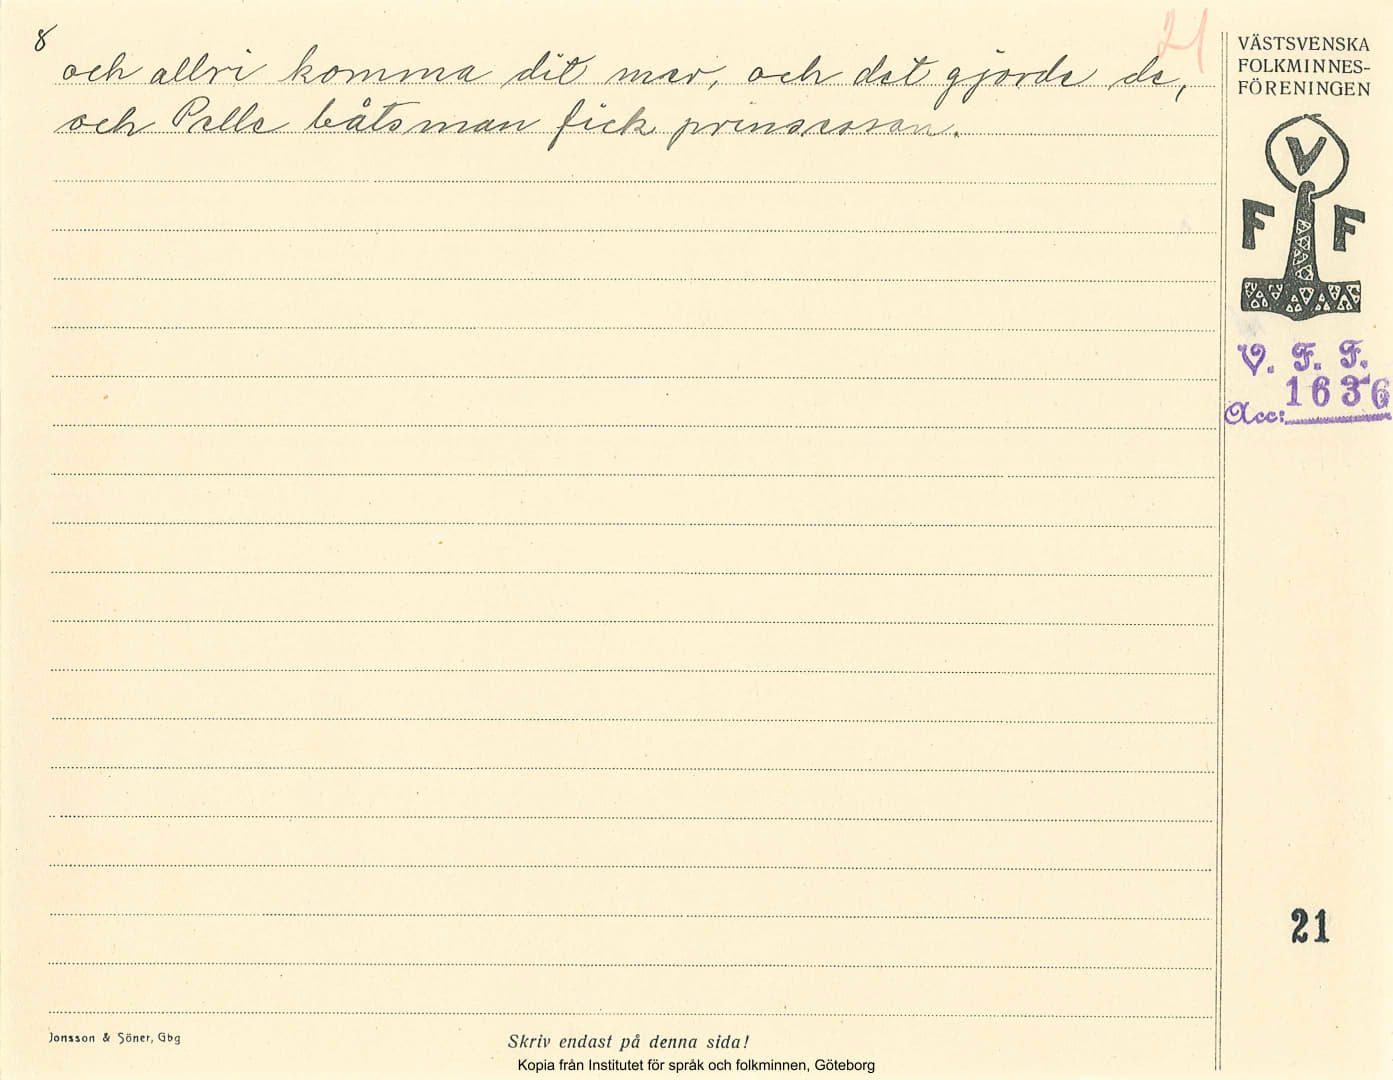 8
21
och allri komma dit mer, och det gjorde de,
och Pelle båtsman fick prinsessan.
VÄSTSVENSKA
FOLKMINNES-
FÖRENINGEN
V
F F
V. F. F.
1636
Acc:
21
Jonsson & Söner, Gbg
Skriv endast på denna sida!
Kopia från Institutet för språk och folkminnen, Göteborg